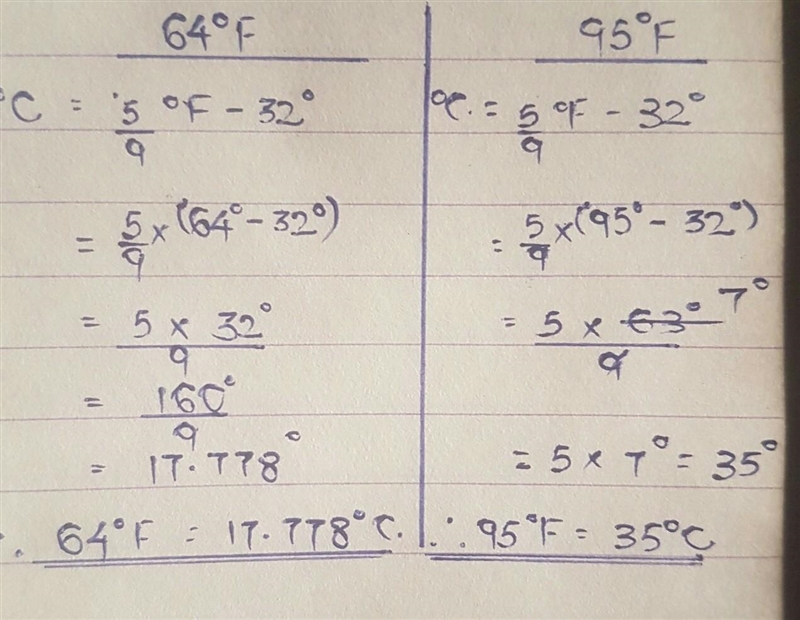 64°F
°C = 5/9 °F - 32°
= 5/9 × (64° - 32°)
= 5 × 32° / 9
= 160° / 9
= 17.778°
∴ 64°F = 17.778°C.
95°F
°C. = 5/9 °F - 32°
= 5/9 × (95° - 32°)
= 5 × 63° 7° / 9
= 5 × 7° = 35°
∴ 95°F = 35°C